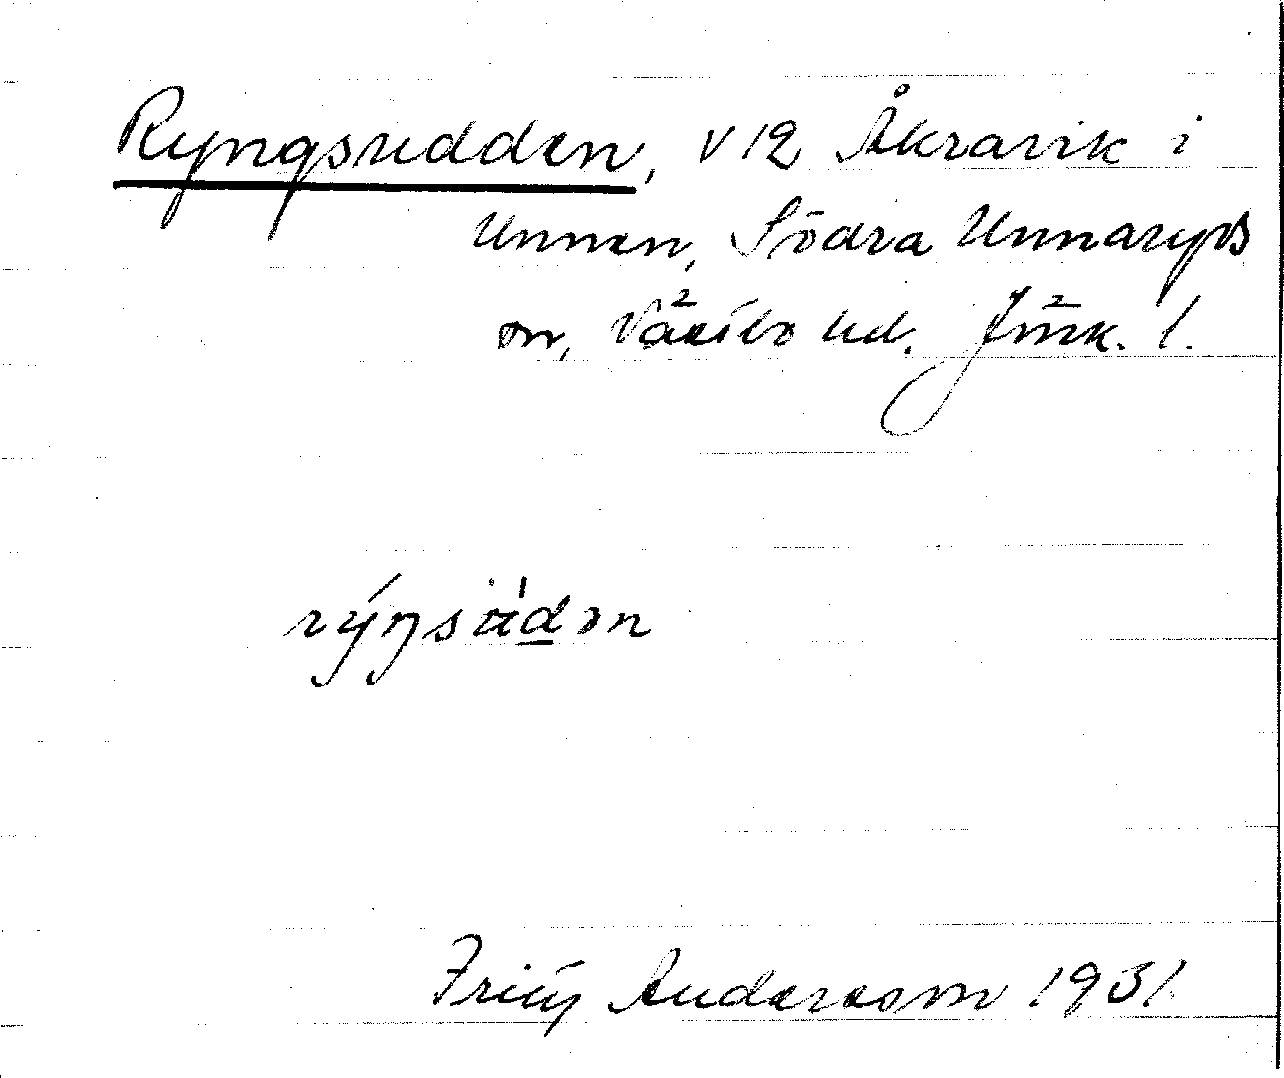 Ryngsudden, v 12 Åkravik i
Unnen, Södra Unnaryds
sn, Västbo hd. Jönk. l.
rýŋsùdən
Fritz Andersson 1931.